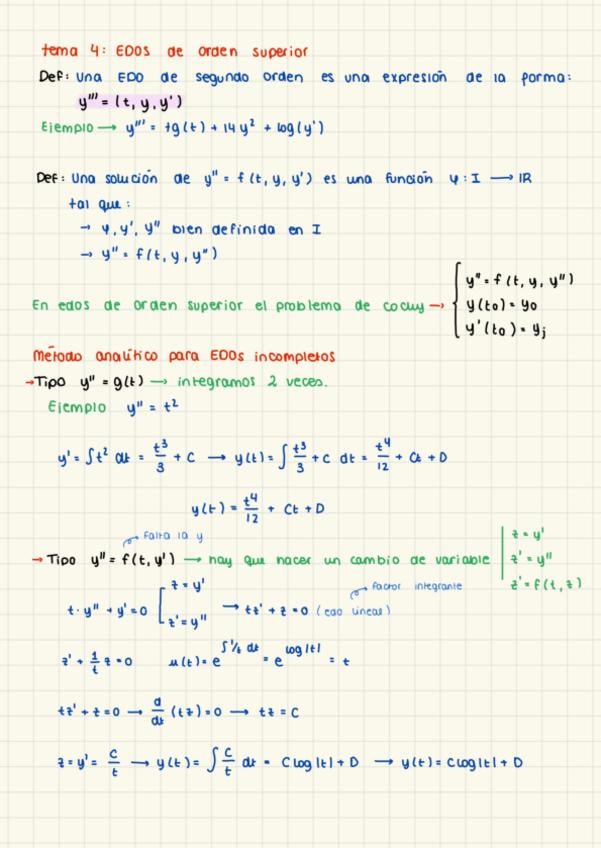 tema 4: EDOS de orden superior
Def: una EDO de segundo orden es una expresión de la forma:
y''' = (t, y, y')
Ejemplo → y''' = tg(t) + 14y² + log(y')
Def: Una solución de y'' = f(t, y, y') es una función φ: I → IR
tal que:
→ φ, y', y'' bien definida en I
→ y'' = f(t, y, y'')
En edos de orden superior el problema de cocuy → { y'' = f(t, y, y'')
y(t0) = y0
y'(t0) = yj
Método analítico para EDOs incompletos
→ Tipo y'' = g(t) → integramos 2 veces.
Ejemplo y'' = t²
y' = ∫t² dt = t³/3 + C → y(t) = ∫ t³/3 + C dt = t⁴/12 + Ct + D
y(t) = t⁴/12 + Ct + D
Falta la y
→ Tipo y'' = f(t, y') → hay que hacer un cambio de variable | z = y'
z' = y''
z' = f(t, z)
t · y'' + y' = 0 [ z = y'
z' = y'' → tz' + z = 0 (edo lineal)
factor integrante
z' + 1/t z = 0 μ(t) = e^∫1/t dt = e^log|t| = t
tz' + z = 0 → d/dt (tz) = 0 → tz = C
z = y' = C/t → y(t) = ∫ C/t dt = C log|t| + D → y(t) = C log|t| + D